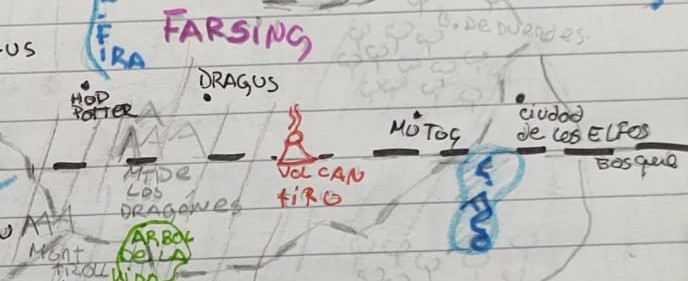 US
FIRA
FARSING
B. De Duendes.
HOD
POTTER
DRAGUS
MUTOG
Ciudad
de Los ELFOS
BOSQUE
MT DE
LOS
DRAGONES
VOLCAN
FIRO
MONT
TROLL
ARBOL
DE LA
VIDA